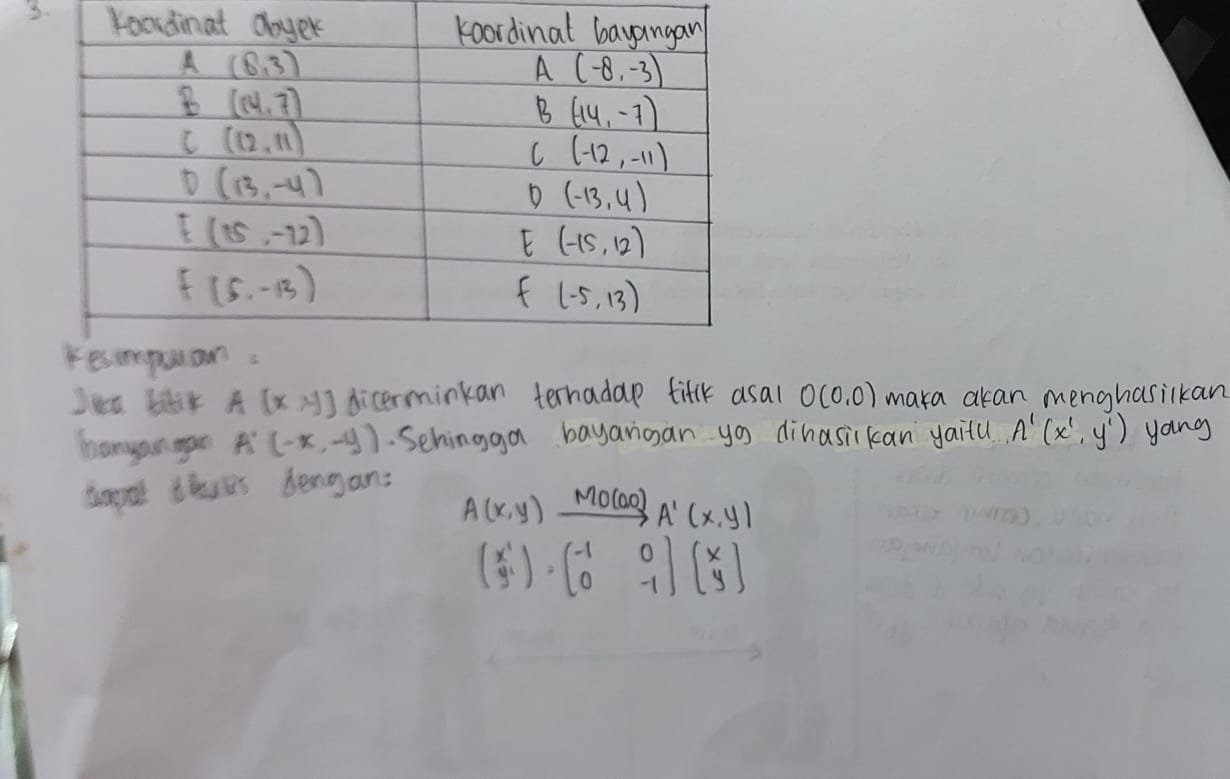 3.
Koordinat obyek	Koordinat bayangan
A (8,3)	A (-8,-3)
B (14,7)	B (-14,-7)
C (12,11)	C (-12,-11)
D (13,-4)	D (-13,4)
E (15,-12)	E (-15,12)
F (5,-13)	F (-5,13)
Kesimpulan :
Jika titik A (x,y) dicerminkan terhadap titik asal O(0,0) maka akan menghasilkan
A' (-x,-y). Sehingga bayangan yg dihasilkan yaitu A' (x', y') yang
dapat ditulis dengan:
A(x,y) MO(0,0)→ A' (x,y)
(x' y') = (-1 0 0 -1) (x y)